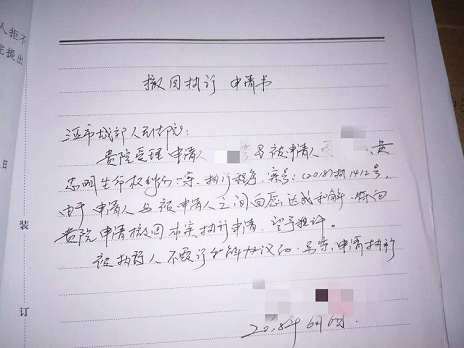 人拒不
完提出
撤回执行 申请书
人民法院:
贵院受理 申请人 与 被申请人 黄
忠明生命权纠纷一案, 执行程序, 案号:(2018)执1412号,
由于 申请人 与 被申请人之间自愿达成和解, 特向
贵院 申请撤回本案执行申请, 望予准许。
被执行人 不履行和解协议的, 另案, 申请执行
2018年6月6日.
装
订